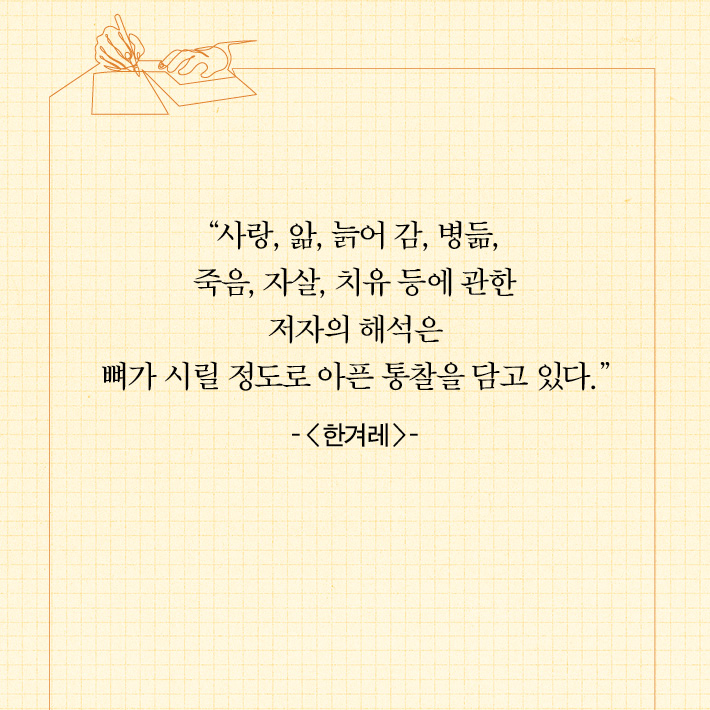 “사랑, 앎, 늙어 감, 병듦,
죽음, 자살, 치유 등에 관한
저자의 해석은
뼈가 시릴 정도로 아픈 통찰을 담고 있다.”
-〈한겨레〉-